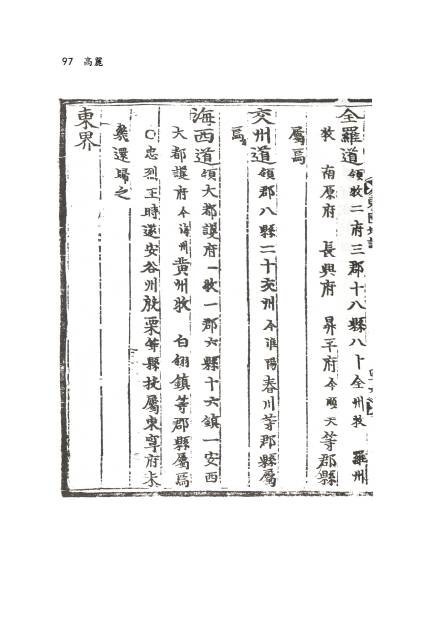 97 高麗
全羅道 領牧二府三郡十八縣八十全州牧 羅州
牧 南原府 長興府 昇平府今順天等郡縣
屬焉
交州道 領郡八縣二十交州今淮陽春川等郡縣屬
焉
海西道 領大都護府一牧一郡六縣十六鎮一安西
大都護府今海州黃州牧 白翎鎮等郡縣屬焉
○忠烈王時遂安谷州殷栗等縣投屬東寧府未
幾還歸之
東界